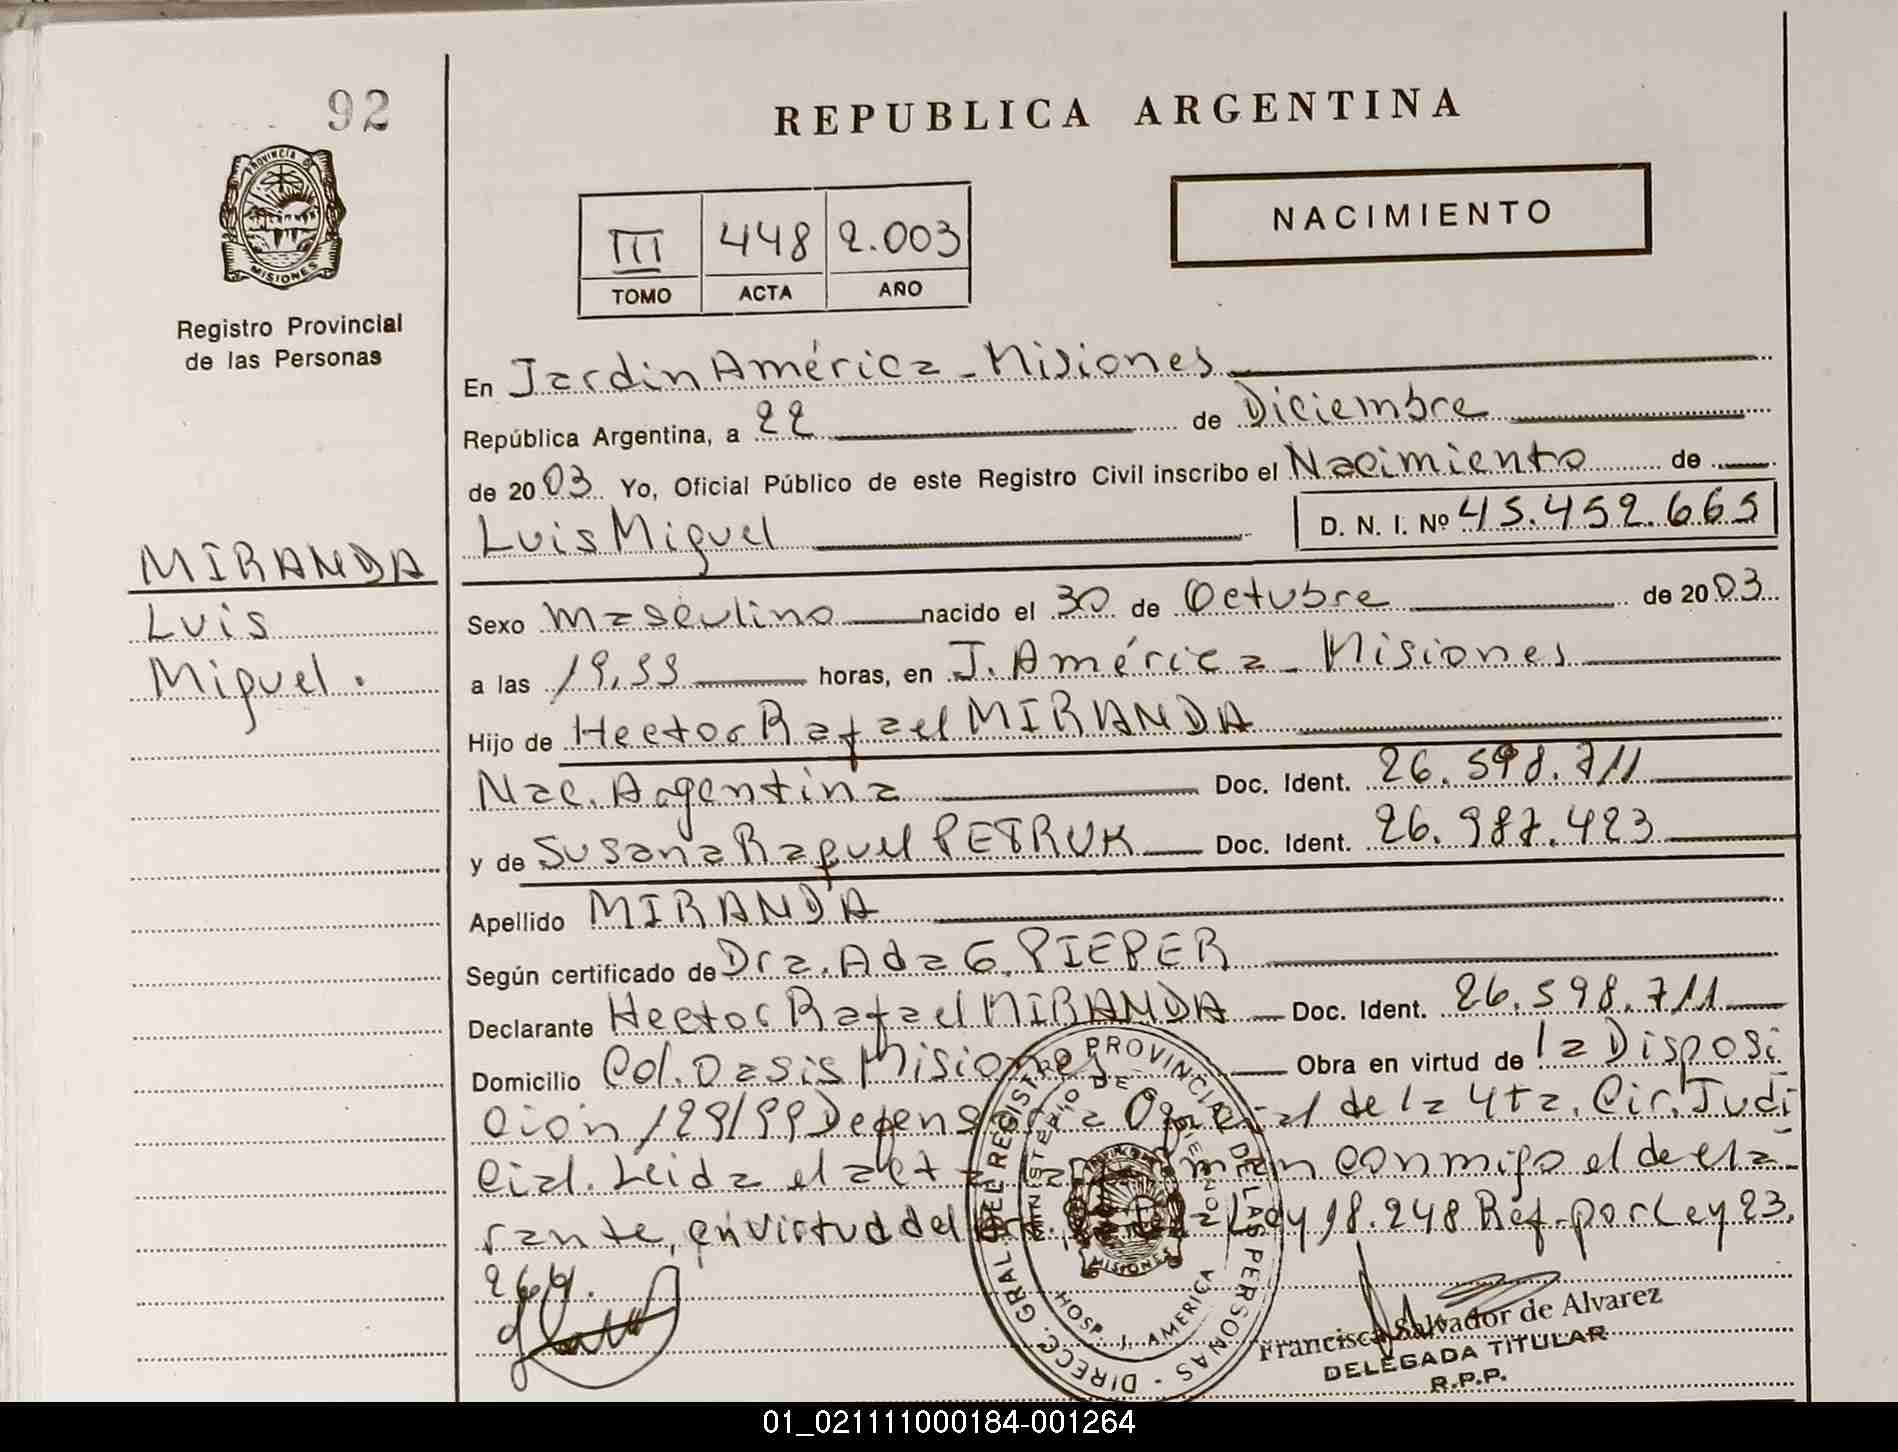 92
REPUBLICA ARGENTINA
PROVINCIA DE
MISIONES
Registro Provincial
de las Personas
III 448 2.003
TOMO ACTA AÑO
NACIMIENTO
En Jardin América - Misiones
República Argentina, a 22 de Diciembre
de 2003 Yo, Oficial Público de este Registro Civil inscribo el Nacimiento de
Luis Miguel D. N. I. Nº 45.452.665
MIRANDA
Luis
Miguel.
Sexo Masculino nacido el 30 de Octubre de 2003
a las 19,35 horas, en J. América - Misiones
Hijo de Hector Rafael MIRANDA
Nac. Argentina Doc. Ident. 26.598.711
y de Susana Raquel PETRUK Doc. Ident. 26.987.423
Apellido MIRANDA
Según certificado de Dra. Ada G. PIEPER
Declarante Hector Rafael MIRANDA Doc. Ident. 26.598.711
Domicilio Col. Oasis Misiones Obra en virtud de la Disposi
cion 129/99 Defensoria Oficial de la 4ta. Cir. Judi
cial. Leida el acta la firman conmigo el decla-
rante, en virtud del Ley 18.248 Ref. por Ley 23.
264.
DIRECC. GRAL. DEL REGISTRO PROVINCIAL DE LAS PERSONAS
MINISTERIO DE GOBIERNO
MISIONES
HOSP. J. AMERICA
Francisca Salvador de Alvarez
DELEGADA TITULAR
R.P.P.
01_021111000184-001264